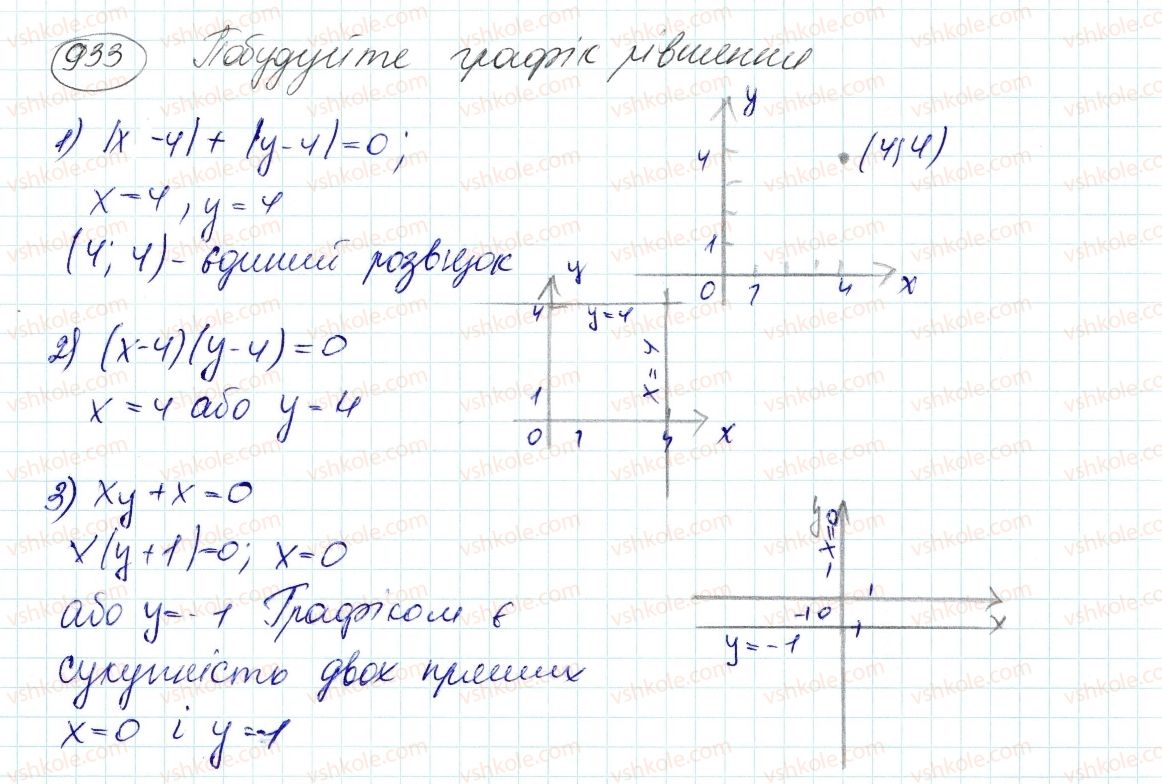 933 Побудуйте графік рівняння
1) |x - 4| + |y - 4| = 0;
x = 4, y = 4
(4; 4) - єдиний розв'язок
y
4
1
0 1 4 x
(4; 4)
2) (x - 4)(y - 4) = 0
x = 4 або y = 4
y
4 y = 4
x = 4
1
0 1 4 x
3) xy + x = 0
x(y + 1) = 0; x = 0
або y = -1 Графіком є
сукупність двох прямих
x = 0 і y = -1
y
x = 0
-1 0 1 x
y = -1
vshkole.com